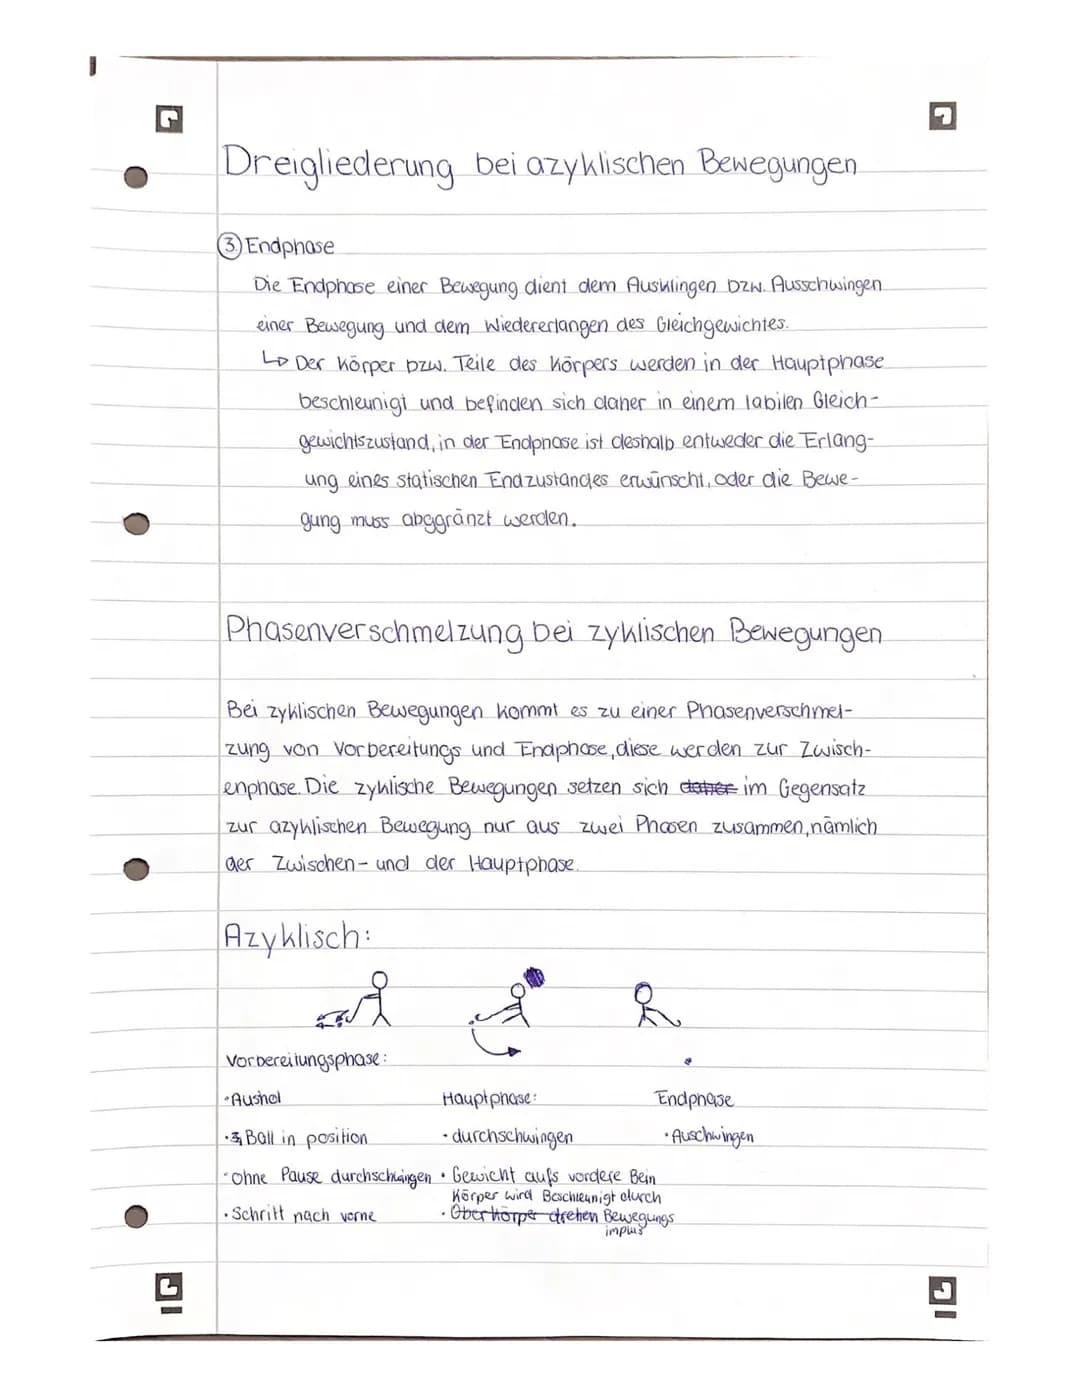 Dreigliederung bei azyklischen Bewegungen
3. Endphase
Die Endphase einer Bewegung dient dem Ausklingen bzw. Ausschwingen
einer Bewegung und dem Wiedererlangen des Gleichgewichtes.
↳ Der Körper bzw. Teile des Körpers werden in der Hauptphase
beschleunigt und befinden sich daher in einem labilen Gleich-
gewichtszustand, in der Endphase ist deshalb entweder die Erlang-
ung eines statischen Endzustandes erwünscht, oder die Bewe-
gung muss abggränzt werden.
Phasenverschmelzung bei zyklischen Bewegungen
Bei zyklischen Bewegungen kommt es zu einer Phasenverschmel-
zung von Vorbereitungs und Endphase, diese werden zur Zwisch-
enphase. Die zyklische Bewegungen setzen sich daher im Gegensatz
zur azyklischen Bewegung nur aus zwei Phasen zusammen, nämlich
der Zwischen- und der Hauptphase.
Azyklisch:
Vorbereitungsphase:
· Aushol
Hauptphase:
Endphase
· Ball in position
· durchschwingen
· Auschwingen
· ohne Pause durchschwingen
· Gewicht aufs vordere Bein
Körper wird Beschleunigt durch
· Schritt nach vorne
· Oberkörper drehen Bewegungs
impuls